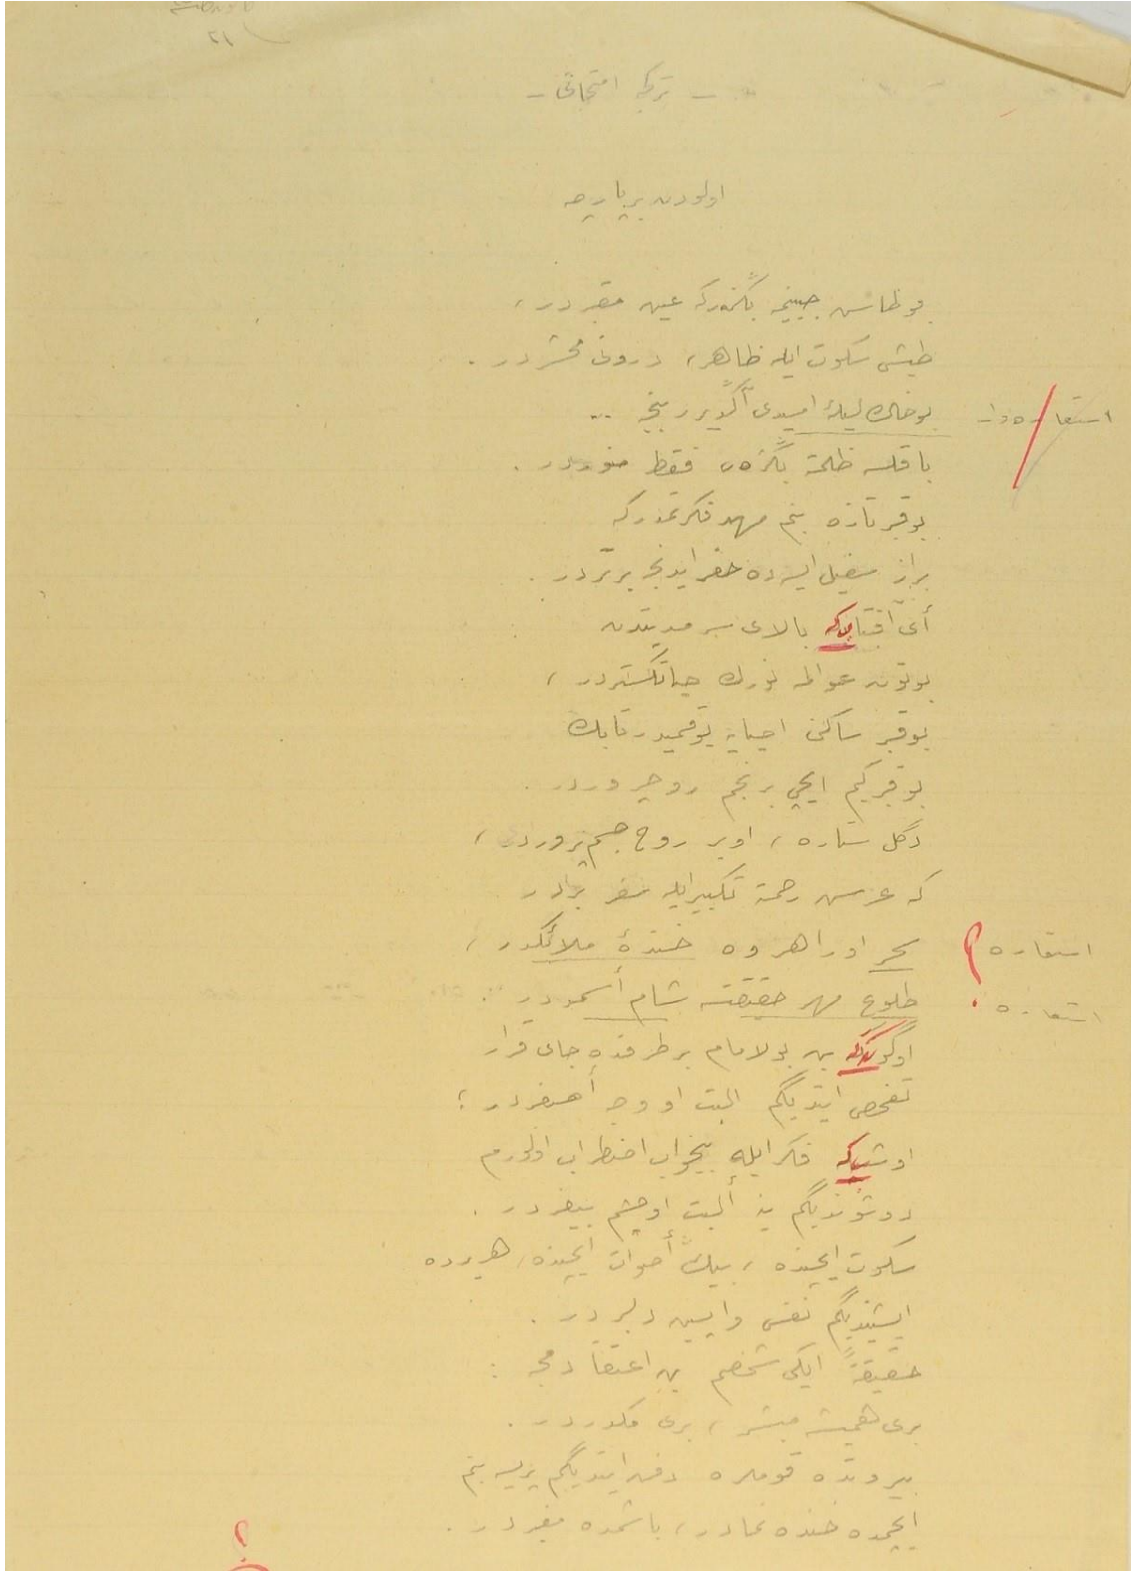 ٢١
ـ تركجه امتحانى ـ
اولودن بر پارچه
بو طاش جبينمه بكزركه عين مقبردر ،
طيشى سكوت ايله ظاهر ، درونى محشردر .
بو خاك ليك اميدى آكديرر بنجه ..
استعاره
باقلسه ظلمته بكزه فقط منوردر .
بو قبر تازه بنم مهد فكرتمدركه
براز سفيل ايسه ده حفر ايدنجه بر تردر .
أى آفتاب كه بالاى سرمديتدن
بوتون عوالمه نورك حياتكستردر ،
بو قبر ساكنى احيايه يوقميدر تابك
بو قبر كيم ايچى بر نجم روحپروردر .
دكل ستاره ، او بر روح جسم پروردر ،
كه عرش رحمته تكبير ايله سفر بردر
سحر اوراهروه خندهٔ ملائكدر ،
استعاره ؟
طلوع مهر حقيقتسه شام أسمردر .
استعاره
اوكوندركه بن بولامام بر طرفده جاى قرار
تفحص ايتديكم البت او وجه أصفردر ؛
او شبكه فكر ايله بيخواب اضطراب اولورم
دوشونديكم ينه ألبت او چشم بيفردر .
سكوت ايچنده ، بيك أصوات ايچنده ، هر يرده
ايشيتديكم نفس واپسين دلبردر .
حقيقةً ايكى شخصم بن اعتقادمجه :
برى هميشه مبشر ، برى مكدردر .
بيروتده قوملره دفن ايتديكم پريسه بنم
ايچمده خنده نمادر ، باشمده مغبردر .
؟